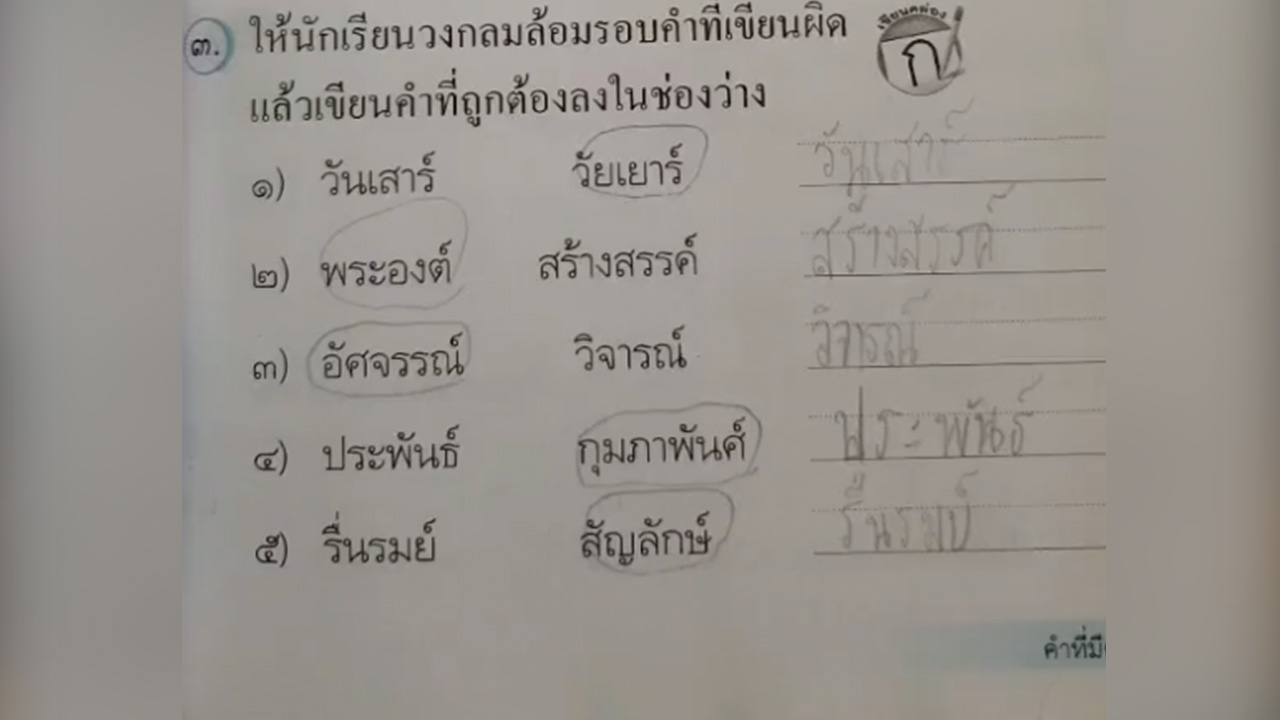 ๓. ให้นักเรียนวงกลมล้อมรอบคำที่เขียนผิด
เขียนคล่อง
ก
แล้วเขียนคำที่ถูกต้องลงในช่องว่าง
๑) วันเสาร์ วัยเยาร์ วันเสาร์
๒) พระองต์ สร้างสรรค์ สร้างสรรค์
๓) อัศจรรณ์ วิจารณ์ วิจารณ์
๔) ประพันธ์ กุมภาพันศ์ ประพันธ์
๕) รื่นรมย์ สัญลักษ์ รื่นรมย์
คำที่มี